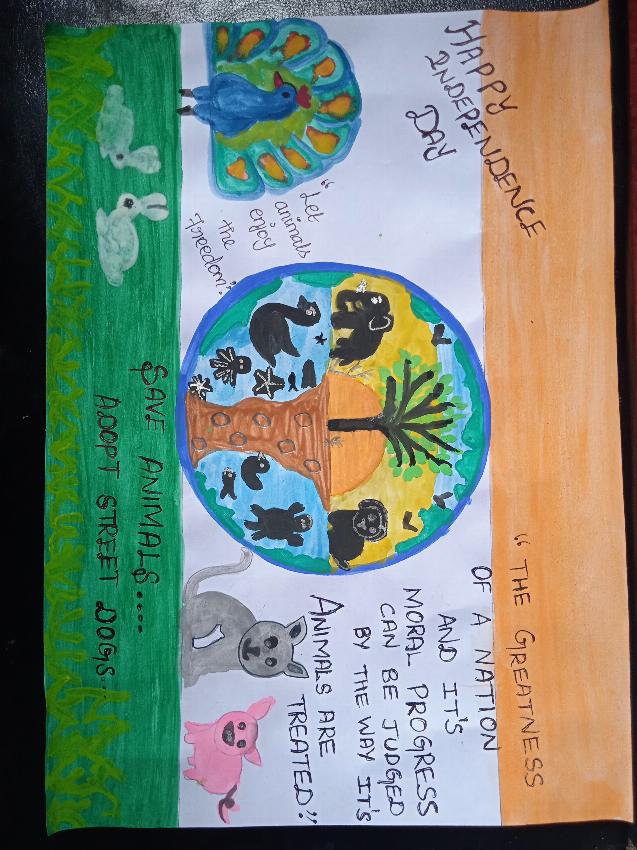 HAPPY
INDEPENDENCE
DAY
"Let
animals
enjoy
the
Freedom"
"THE GREATNESS
OF A NATION
AND IT'S
MORAL PROGRESS
CAN BE JUDGED
BY THE WAY IT'S
ANIMALS ARE
TREATED"
SAVE ANIMALS....
ADOPT STREET DOGS...